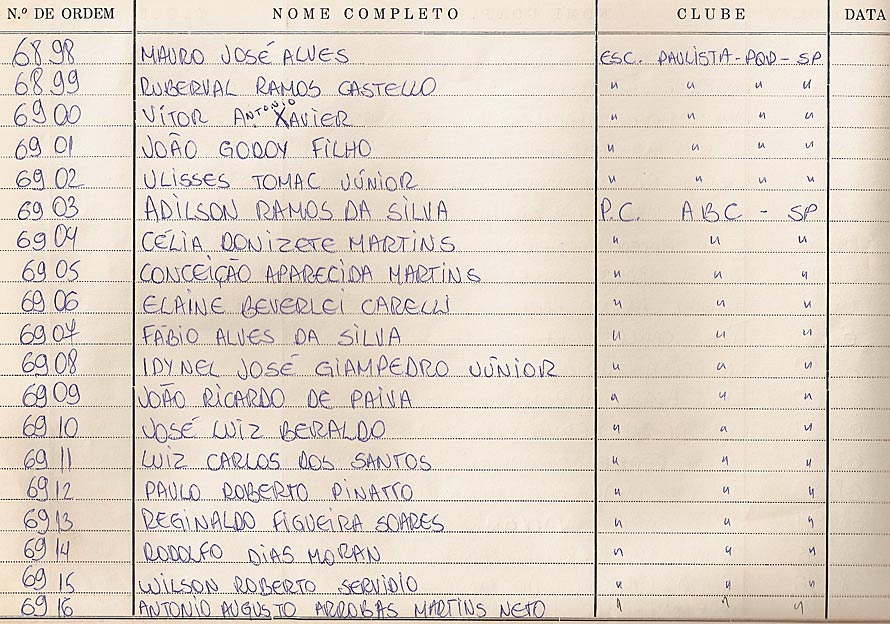 N.º DE ORDEM NOME COMPLETO CLUBE DATA
6898 MAURO JOSÉ ALVES ESC. PAULISTA - PQD - SP
6899 RUBERVAL RAMOS CASTELLO " " " "
6900 VÍTOR ANTONIO XAVIER " " " "
6901 JOÃO GODOY FILHO " " " "
6902 ULISSES TOMAC JÚNIOR " " " "
6903 ADILSON RAMOS DA SILVA P.C. ABC - SP
6904 CÉLIA DONIZETE MARTINS " " "
6905 CONCEIÇÃO APARECIDA MARTINS " " "
6906 ELAINE BEVERLEI CARELLI " " "
6907 FÁBIO ALVES DA SILVA " " "
6908 IDYNEL JOSÉ GIAMPEDRO JÚNIOR " " "
6909 JOÃO RICARDO DE PAIVA " " "
6910 JOSÉ LUIZ BERALDO " " "
6911 LUIZ CARLOS DOS SANTOS " " "
6912 PAULO ROBERTO PINATTO " " "
6913 REGINALDO FIGUEIRA SOARES " " "
6914 RODOLFO DIAS MORAN " " "
6915 WILSON ROBERTO SERVIDIO " " "
6916 ANTONIO AUGUSTO ARROBAS MARTINS NETO " " "